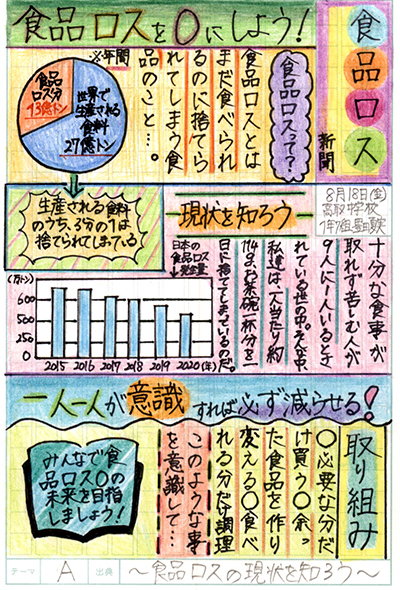 食品ロス
新聞
8月18日(金)
高取中学校
1年7組
食品ロスを0にしよう!
食品ロスって?
食品ロスとは
まだ食べられ
るのに捨てら
れてしまう食
品のこと…。
※年間
食品
ロス分
13億トン
世界で
生産される
食料
27億トン
生産される食料
のうち、3分の1は
捨てられてしまっている
現状を知ろう
十分な食事が
取れず苦しむ人が
9人に1人いるとさ
れている世の中。そんな中、
私達は一人当たり約
114g、お茶碗一杯分を一
日に捨ててしまっているのだ。
日本の
食品ロス
発生量
(万トン)
600
500
250
0
2015 2016 2017 2018 2019 2020(年)
一人一人が意識すれば必ず減らせる!
取り組み
○必要な分だ
け買う○余っ
た食品を作り
変える○食べ
れる分だけ調理
このような事
を意識して…
みんなで食
品ロス0の
未来を目指
しましょう!
テーマ A 出典 ~食品ロスの現状を知ろう~